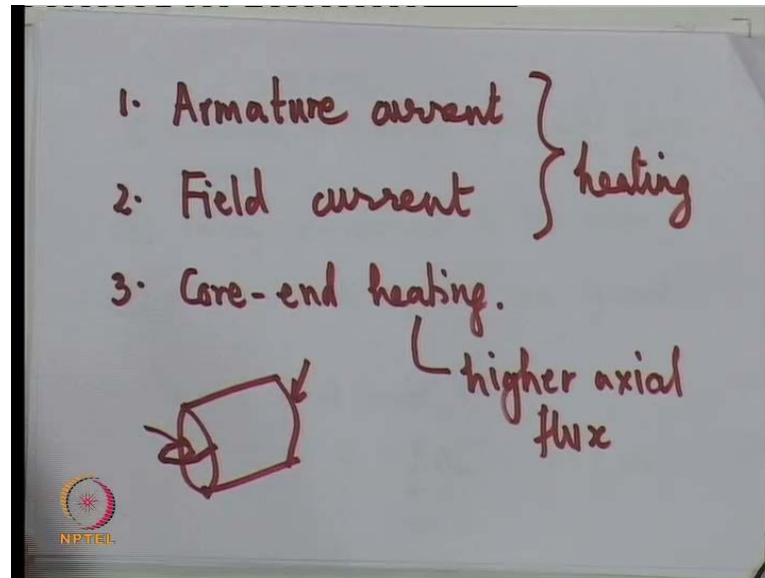 1. Armature current
2. Field current
heating
3. Core-end heating.
higher axial
flux
NPTEL